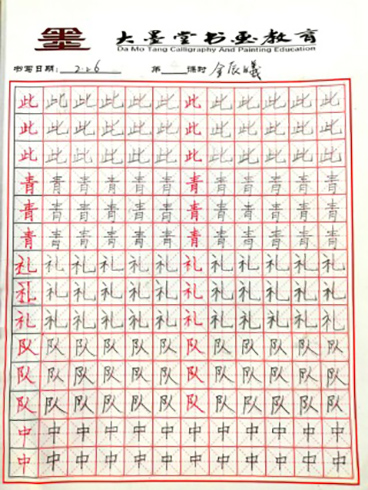 墨 大墨堂书画教育
Da Mo Tang Calligraphy And Painting Education
书写日期: 2.26 第 课时 金辰曦
此此此此此此此此此此此此
此此此此此此此此此此此此
此此此此此此此此此此此此
青青青青青青青青青青青青
青青青青青青青青青青青青
青青青青青青青青青青青青
礼礼礼礼礼礼礼礼礼礼礼礼
礼礼礼礼礼礼礼礼礼礼礼礼
礼礼礼礼礼礼礼礼礼礼礼礼
队队队队队队队队队队队队
队队队队队队队队队队队队
队队队队队队队队队队队队
中中中中中中中中中中中中
中中中中中中中中中中中中